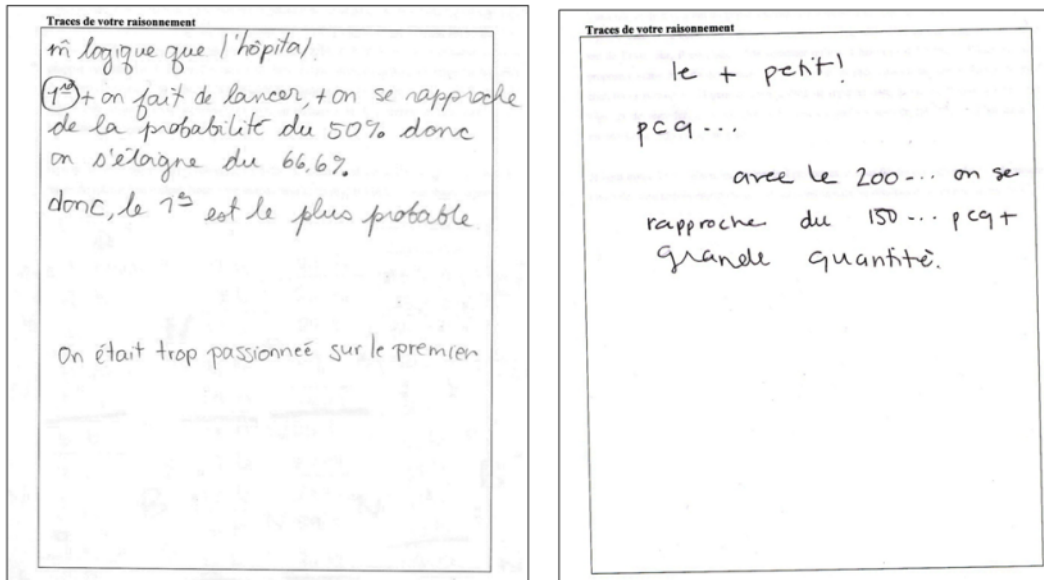 Traces de votre raisonnement
m̂ logique que l'hôpital.
1re + on fait de lancer, + on se rapproche
de la probabilité du 50% donc
on s'éloigne du 66,6%
donc, le 1e est le plus probable
On était trop passionneé sur le premier
Traces de votre raisonnement
le + petit!
pcq...
avec le 200... on se
rapproche du 150... pcq +
grande quantité.